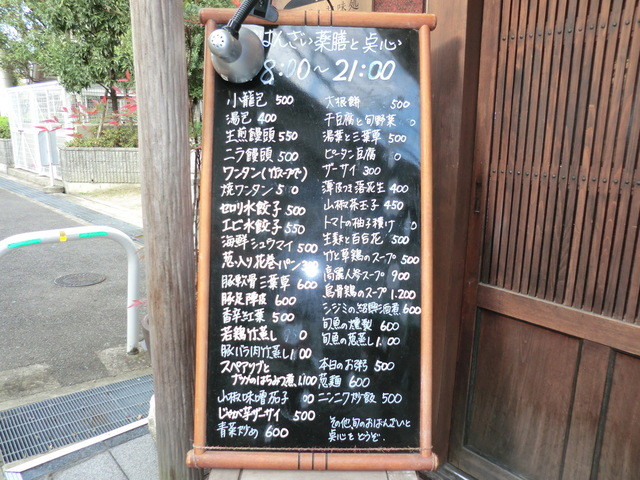 味処
はんざい薬膳と点心
8:00〜21:00
小籠包 500
湯包 400
生煎饅頭 550
ニラ饅頭 500
ワンタン
焼ワンタン
セロリ水餃子 500
エビ水餃子 550
海鮮シュウマイ 500
葱入り花巻パン
豚軟骨三葉草 600
豚足陳皮 600
香辛红葉 500
若鶏竹蒸し
豚バラ肉竹蒸し
スペアリブと
はちみつ煮 1,100
山椒味噌茄子
じゃが芋ザーサイ 500
青菜炒め 600
大根餅 500
干豆腐と旬野菜
湯葉と三葉草 500
ピータン豆腐
ザーサイ 300
落花生 400
山椒茶玉子 450
トマトの柚子漬け
生麩と百合花 500
竹と草鶏のスープ 500
高麗人参スープ 900
烏骨鶏のスープ 1,200
シジミの紹興酒煮 600
旬魚の燻製 600
旬魚の葱蒸し
本日のお粥 500
葱麺 600
ニンニク炒飯 500
その他、旬のおばんざいと
点心をどうぞ。